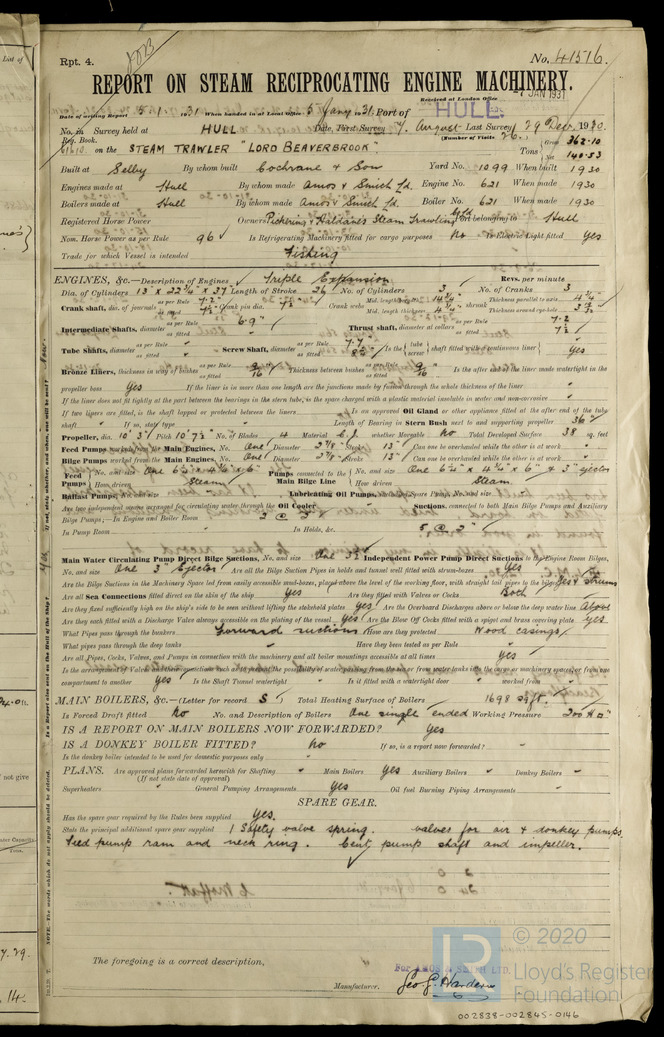 Rpt. 4. No. 41516.
REPORT ON STEAM RECIPROCATING ENGINE MACHINERY.
Received at London Office
7 JAN 1931
Date of writing Report 5.1.1931 When handed in at Local Office 5 Jany 1931 Port of HULL
No. in Survey held at HULL Date, First Survey 7. August Last Survey 29 Dec. 1930
Reg. Book. (Number of Visits 26.
on the STEAM TRAWLER "LORD BEAVERBROOK" Tons Gross 362.10
Net 140.53
Built at Selby By whom built Cochrane & Son Yard No. 1099 When built 1930
Engines made at Hull By whom made Amos & Smith Ld. Engine No. 621 When made 1930
Boilers made at Hull By whom made Amos & Smith Ld. Boiler No. 621 When made 1930
Registered Horse Power Owners Pickering & Haldane's Steam Trawling Port belonging to Hull
Nom. Horse Power as per Rule 96 Is Refrigerating Machinery fitted for cargo purposes No Is Electric Light fitted Yes
Trade for which Vessel is intended Fishing
ENGINES, &c.—Description of Engines Triple Expansion Revs. per minute
Dia. of Cylinders 13" x 22¾" x 37 Length of Stroke 26 No. of Cylinders 3 No. of Cranks 3
Crank shaft, dia. of journals as per Rule 7.2" as fitted 7½" Crank pin dia. 7½" Crank webs Mid. length breadth Mid. length thickness 4¾" shrunk Thickness parallel to axis 4¾" Thickness around eye-hole
Intermediate Shafts, diameter as per Rule 6.9" as fitted Thrust shaft, diameter at collars as per Rule 7.2 as fitted 7½"
Tube Shafts, diameter as per Rule as fitted Screw Shaft, diameter as per Rule 7.7 as fitted Is the tube screw shaft fitted with continuous liner Yes
Bronze Liners, thickness in way of bushes as per Rule as fitted 9/16" Thickness between bushes as per Rule as fitted 9/16" Is the after end of the liner made watertight in the
propeller boss Yes If the liner is in more than one length are the junctions made by fusion through the whole thickness of the liner "
If the liner does not fit tightly at the part between the bearings in the stern tube, is the space charged with a plastic material insoluble in water and non-corrosive "
If two liners are fitted, is the shaft lapped or protected between the liners Is an approved Oil Gland or other appliance fitted at the after end of the tube
shaft If so, state type Length of Bearing in Stern Bush next to and supporting propeller 36"
Propeller, dia. 10' 3" Pitch 10' 7½" No. of Blades 4 Material C.I. whether Moveable No Total Developed Surface 38 sq. feet
Feed Pumps worked from the Main Engines, No. One Diameter 2⅞" Stroke 13" Can one be overhauled while the other is at work "
Bilge Pumps worked from the Main Engines, No. One Diameter 2⅞" Stroke 13" Can one be overhauled while the other is at work "
Feed Pumps No. and size One 6½ x 4¼ x 6" How driven Steam Pumps connected to the Main Bilge Line No. and size One 6¼" x 4¼" x 6" & 3" ejector How driven Steam
Ballast Pumps, No. and size Lubricating Oil Pumps, including Spare Pump, No. and size
Are two independent means arranged for circulating water through the Oil Cooler Suctions, connected to both Main Bilge Pumps and Auxiliary
Bilge Pumps;—In Engine and Boiler Room 3 @ 2"
In Pump Room In Holds, &c. 5 @ 2"
Main Water Circulating Pump Direct Bilge Suctions, No. and size One 3½ Independent Power Pump Direct Suctions to the Engine Room Bilges,
No. and size One 3" Ejector Are all the Bilge Suction Pipes in holds and tunnel well fitted with strum-boxes Yes
Are the Bilge Suctions in the Machinery Space led from easily accessible mud-boxes, placed above the level of the working floor, with straight tail pipes to the bilges Yes & strums
Are all Sea Connections fitted direct on the skin of the ship Yes Are they fitted with Valves or Cocks Both
Are they fixed sufficiently high on the ship's side to be seen without lifting the stokehold plates Yes Are the Overboard Discharges above or below the deep water line Above
Are they each fitted with a Discharge Valve always accessible on the plating of the vessel Yes Are the Blow Off Cocks fitted with a spigot and brass covering plate Yes
What Pipes pass through the bunkers Forward suctions How are they protected Wood casings
What pipes pass through the deep tanks Have they been tested as per Rule "
Are all Pipes, Cocks, Valves, and Pumps in connection with the machinery and all boiler mountings accessible at all times Yes
Is the arrangement of Valves and their connections such as to prevent the possibility of water passing from the sea or from water tanks into the cargo or machinery spaces, or from one
compartment to another Yes Is the Shaft Tunnel watertight " Is it fitted with a watertight door worked from "
MAIN BOILERS, &c.—(Letter for record S) Total Heating Surface of Boilers 1698 sq ft.
Is Forced Draft fitted No No. and Description of Boilers One single ended Working Pressure 200 lb □"
IS A REPORT ON MAIN BOILERS NOW FORWARDED? Yes
IS A DONKEY BOILER FITTED? No If so, is a report now forwarded? "
Is the donkey boiler intended to be used for domestic purposes only
PLANS. Are approved plans forwarded herewith for Shafting " Main Boilers Yes Auxiliary Boilers " Donkey Boilers "
(If not state date of approval)
Superheaters " General Pumping Arrangements Yes Oil fuel Burning Piping Arrangements "
SPARE GEAR.
Has the spare gear required by the Rules been supplied Yes.
State the principal additional spare gear supplied 1 Safety valve spring. valves for air & donkey pumps.
Feed pump ram and neck ring. Cent. pump shaft and impeller.
The foregoing is a correct description,
For AMOS & SMITH LTD.
Geo. G. Harden
Manufacturer.
© 2020
LR
Lloyd's Register
Foundation
002838-002845-0146